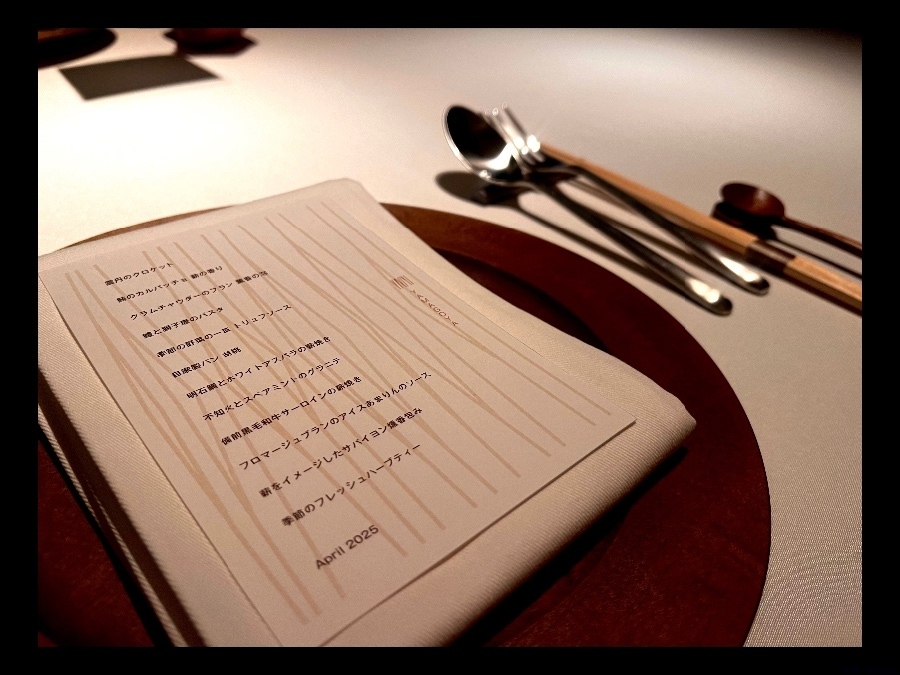 雲丹のクロケット
鮪のカルパッチョ 薪の香り
クラムチャウダーのフラン 燻香の泡
鱒と獅子唐のパスタ
季節の野菜の一皿 トリュフソース
自家製パン
明石鯛とホワイトアスパラの薪焼き
不知火とスペアミントのグラニテ
備前黒毛和牛サーロインの薪焼き
フロマージュブランのアイス あまりんのソース
薪をイメージしたサバイヨン燻香包み
季節のフレッシュハーブティー
April 2025